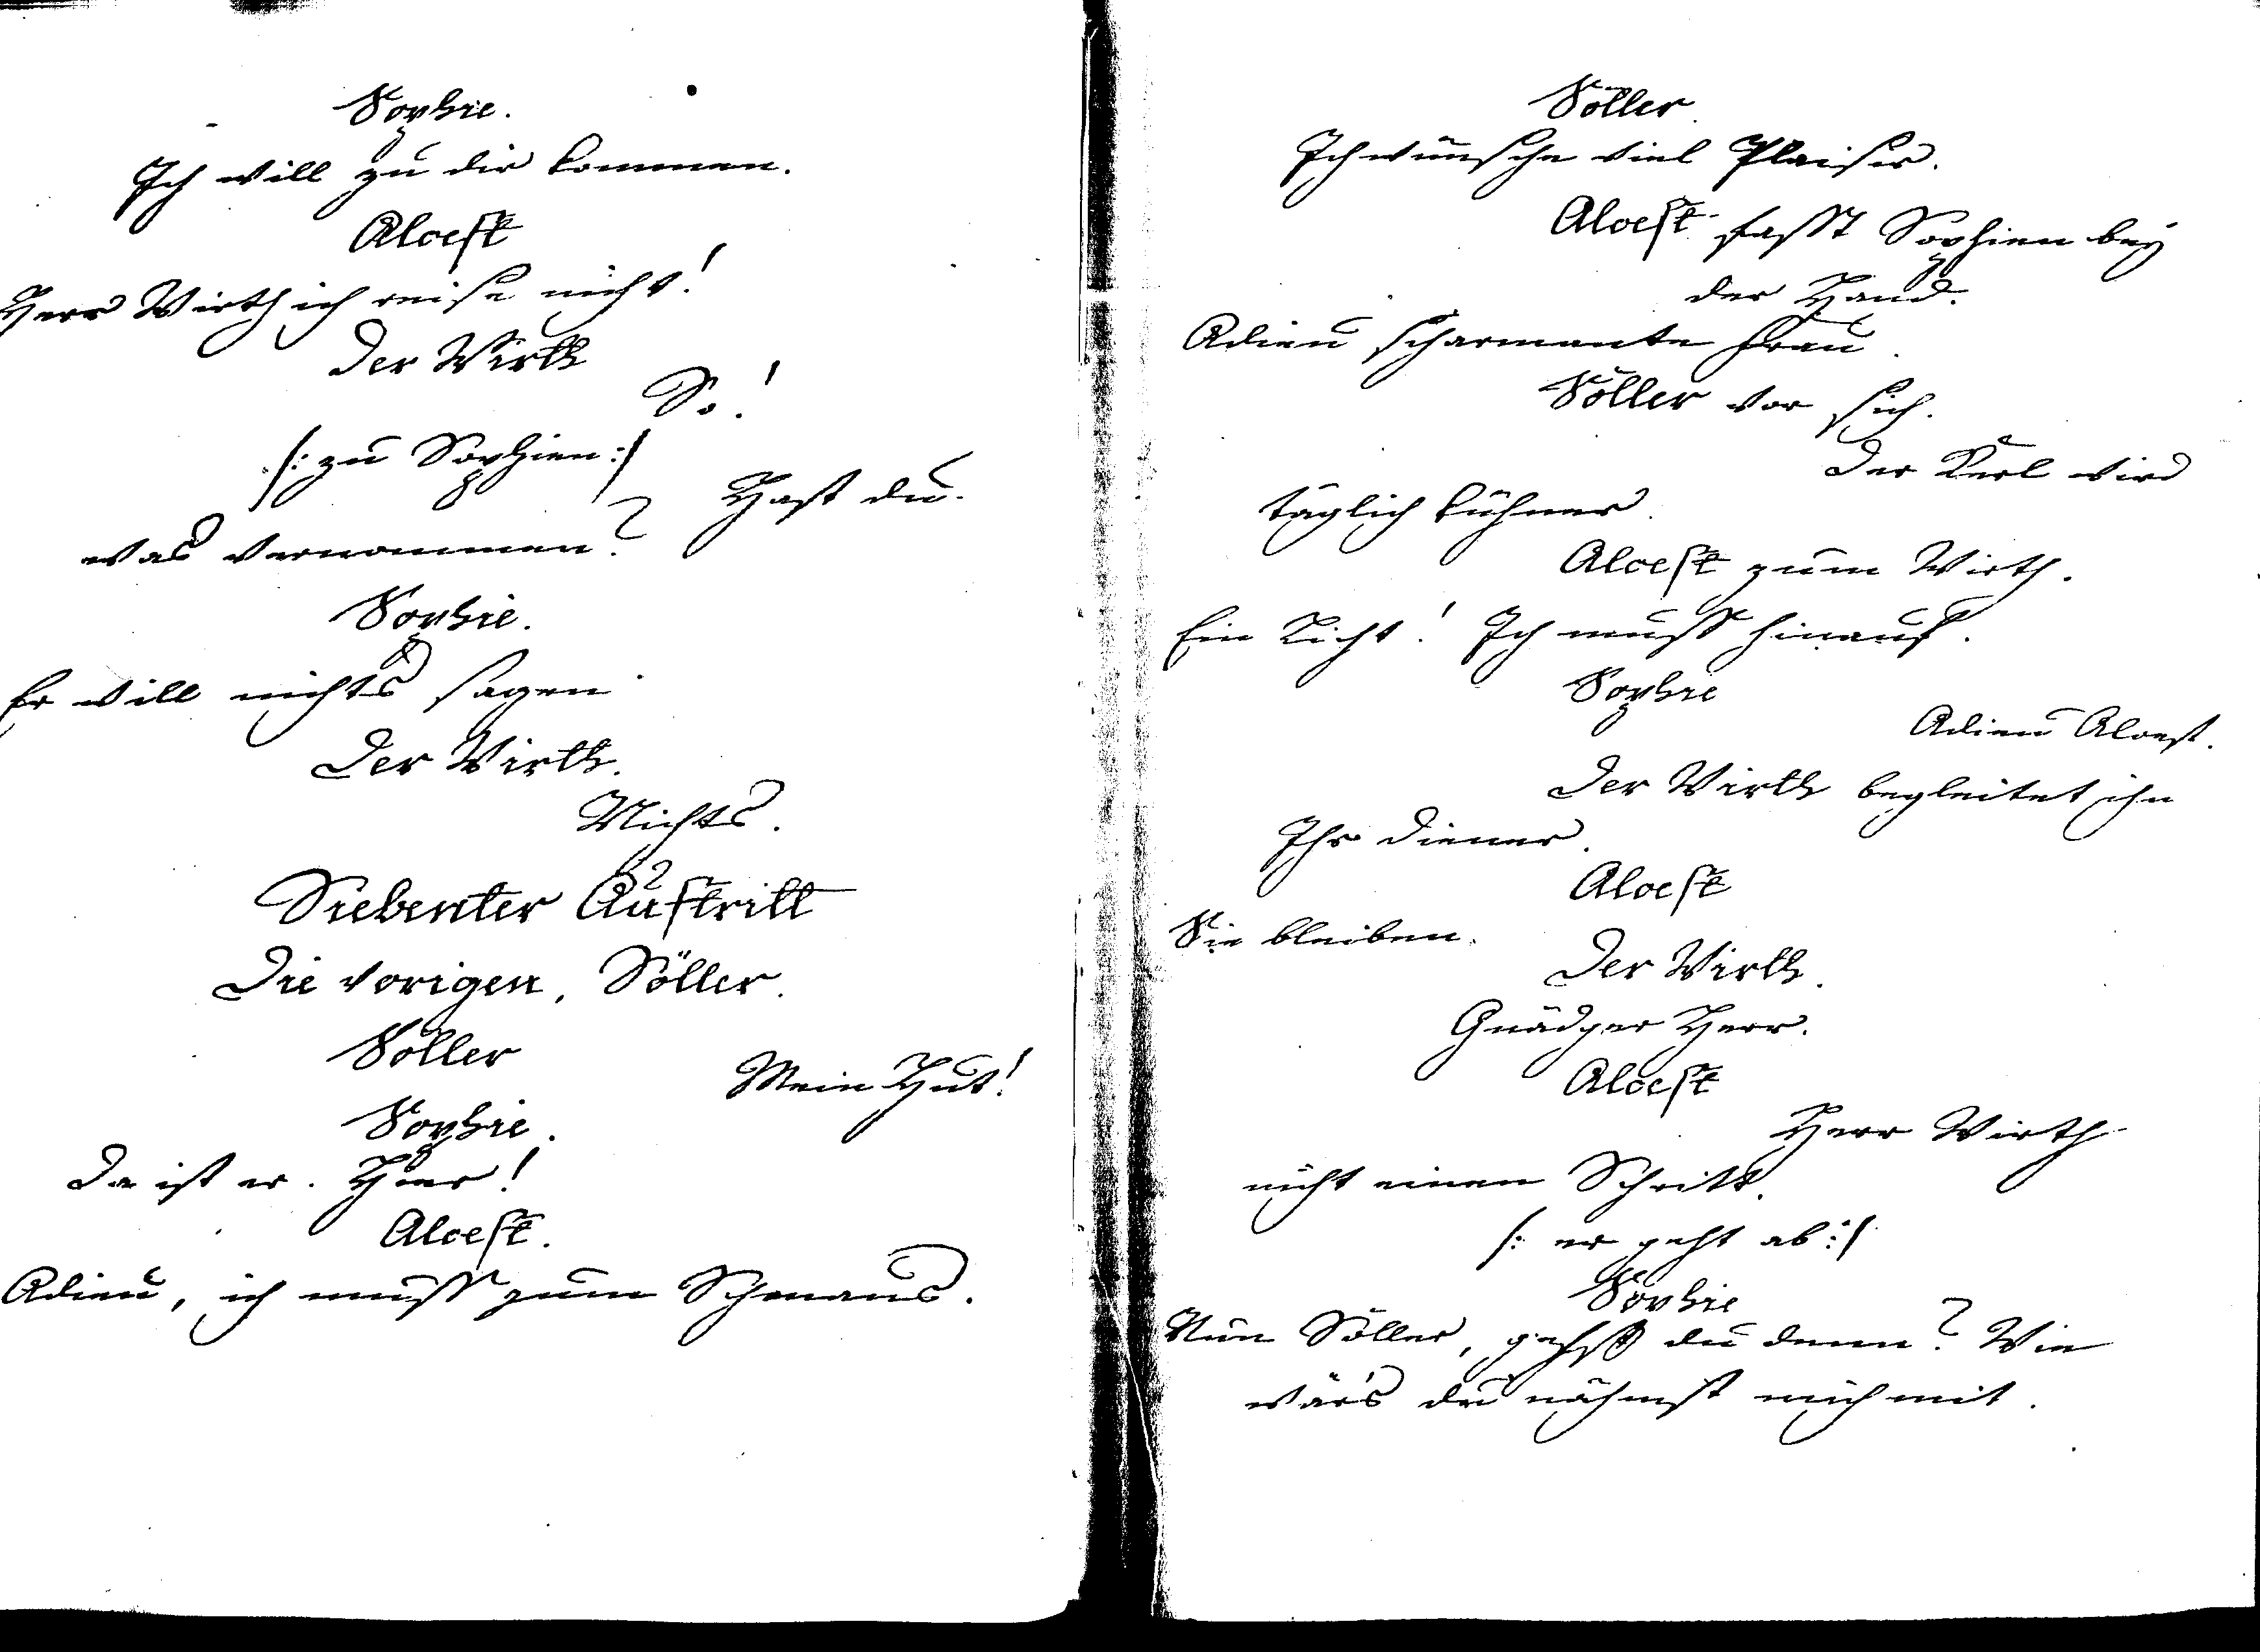 Sophie.
Ich will zu dir kommen.
Alcest
Herr Wirth ich reise nicht!
Der Wirth
So!
/: zu Sophien :/
Hast du
was vernommen?
Sophie.
Er will nichts sagen
Der Wirth.
Nichts.
Siebenter Auftritt
Die vorigen, Söller.
Söller
Mein Hut!
Sophie.
Da ist er. Hier!
Alcest.
Adieu, ich muss zum Schmaus.
Söller
Ich wünsche viel Plaisir.
Alcest fasst Sophien bey
der Hand.
Adieu scharmante Frau.
Söller vor sich.
Der Kerl wird
täglich kühner.
Alcest zum Wirth.
Ein Licht! Ich muss hinauf.
Sophie
Adieu Alcest.
Der Wirth begleitet ihn
Ihr Diener.
Alcest
Sie bleiben.
Der Wirth.
Gnädger Herr.
Alcest
Herr Wirth
nicht einen Schritt.
/: er geht ab :/
Sophie
Nun Söller, gehst du denn? Wie
wär's du nähmst mich mit.